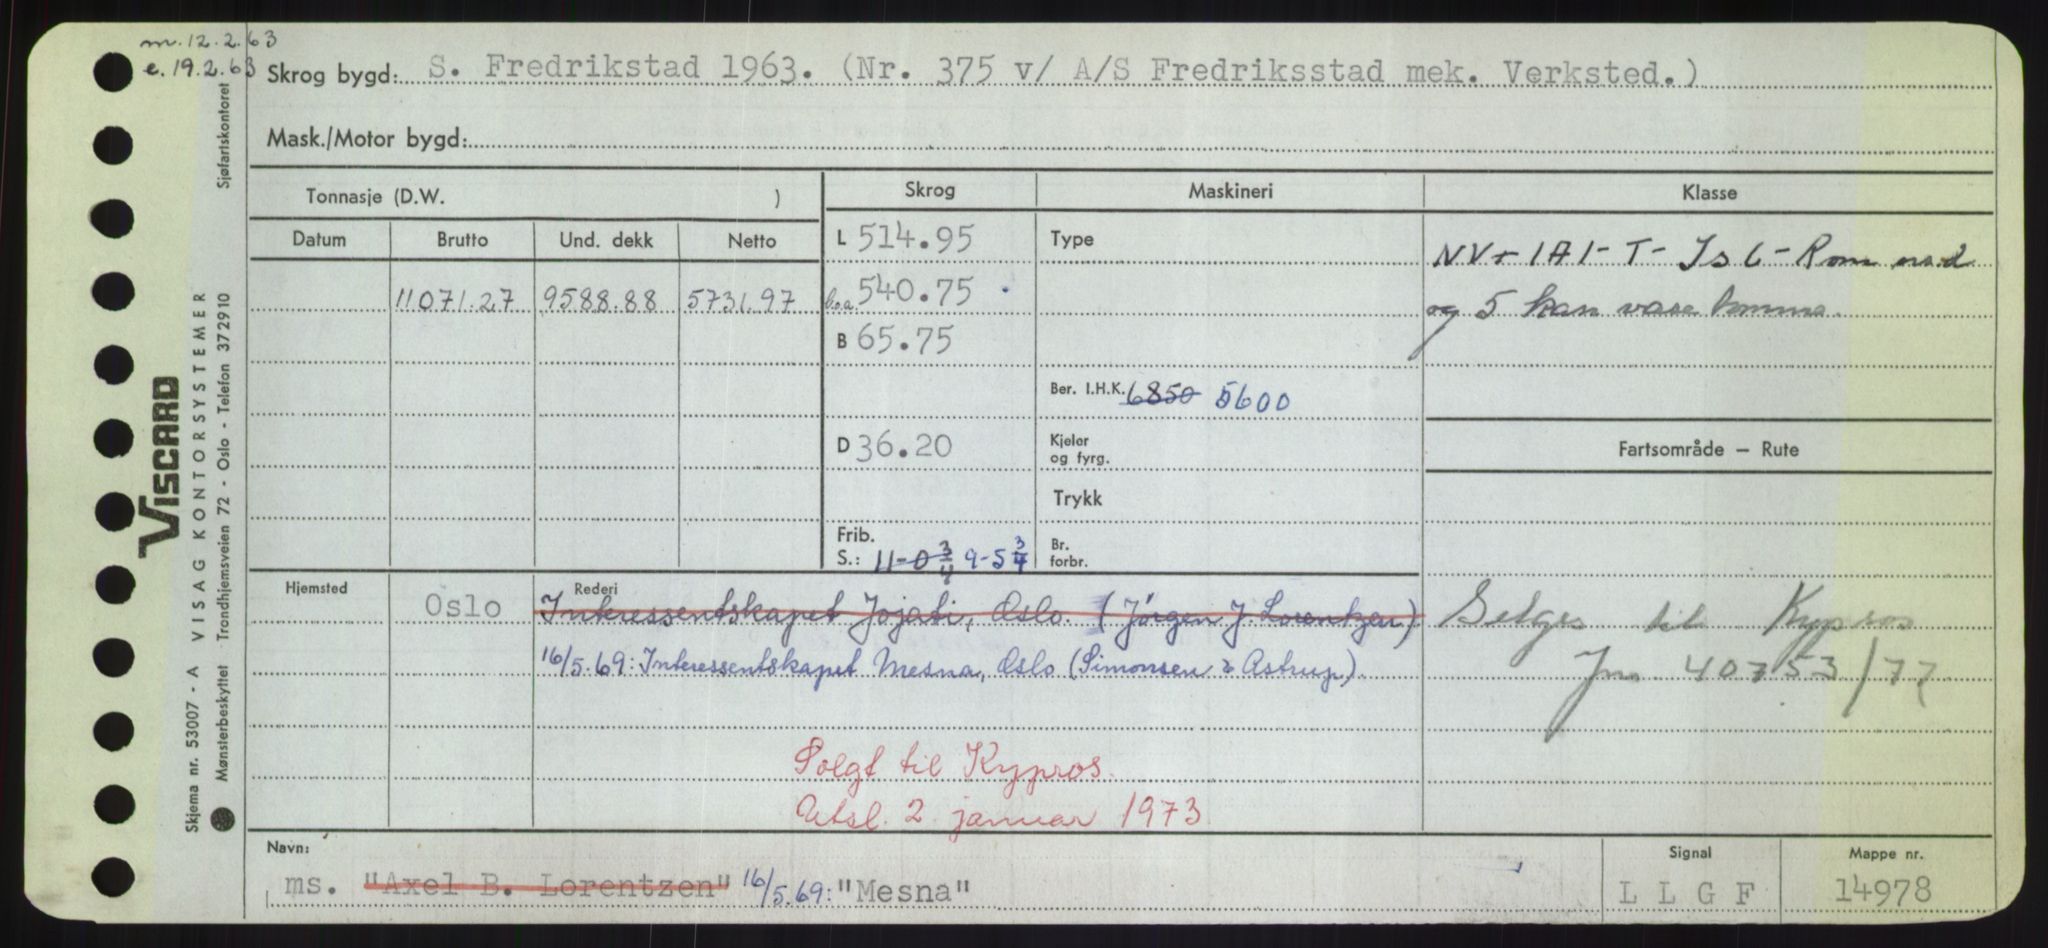 m. 12.2.63
e. 19.2.63
Skrog bygd: S. Fredrikstad 1963. (Nr. 375 v/ A/S Fredriksstad mek. Verksted.)
Mask./Motor bygd:
Tonnasje (D.W. )
Skrog
Maskineri
Klasse
Datum
Brutto
Und. dekk
Netto
11071.27
9588.88
5731.97
L 514.95
b.a. 540.75
B 65.75
D 36.20
Frib.
S.: 11-0 3/4 9-5 3/4
Type
Ber. I.H.K. 6850 5600
Kjeler
og fyrg.
Trykk
Br.
forbr.
NV + 1A1 - T - Is C - Rom
og 5 kan være tomme.
Fartsområde — Rute
Hjemsted
Oslo
Rederi
Interessentskapet Jojati, Oslo. (Jörgen J. Lorentzen)
16/5.69: Interessentskapet Mesna, Oslo (Simonsen & Astrup).
Selges til Kypros
Jnr. 40753/72
Solgt til Kypros.
Utsl. 2. januar 1973
Navn:
ms. "Axel B. Lorentzen" 16/5.69: "Mesna"
Signal
L L G F
Mappe nr.
14978
Sjøfartskontoret
VISCARD
Skjema nr. 53007 - A VISAG KONTORSYSTEMER
Mønsterbeskyttet Trondhjemsveien 72 - Oslo - Telefon 372910